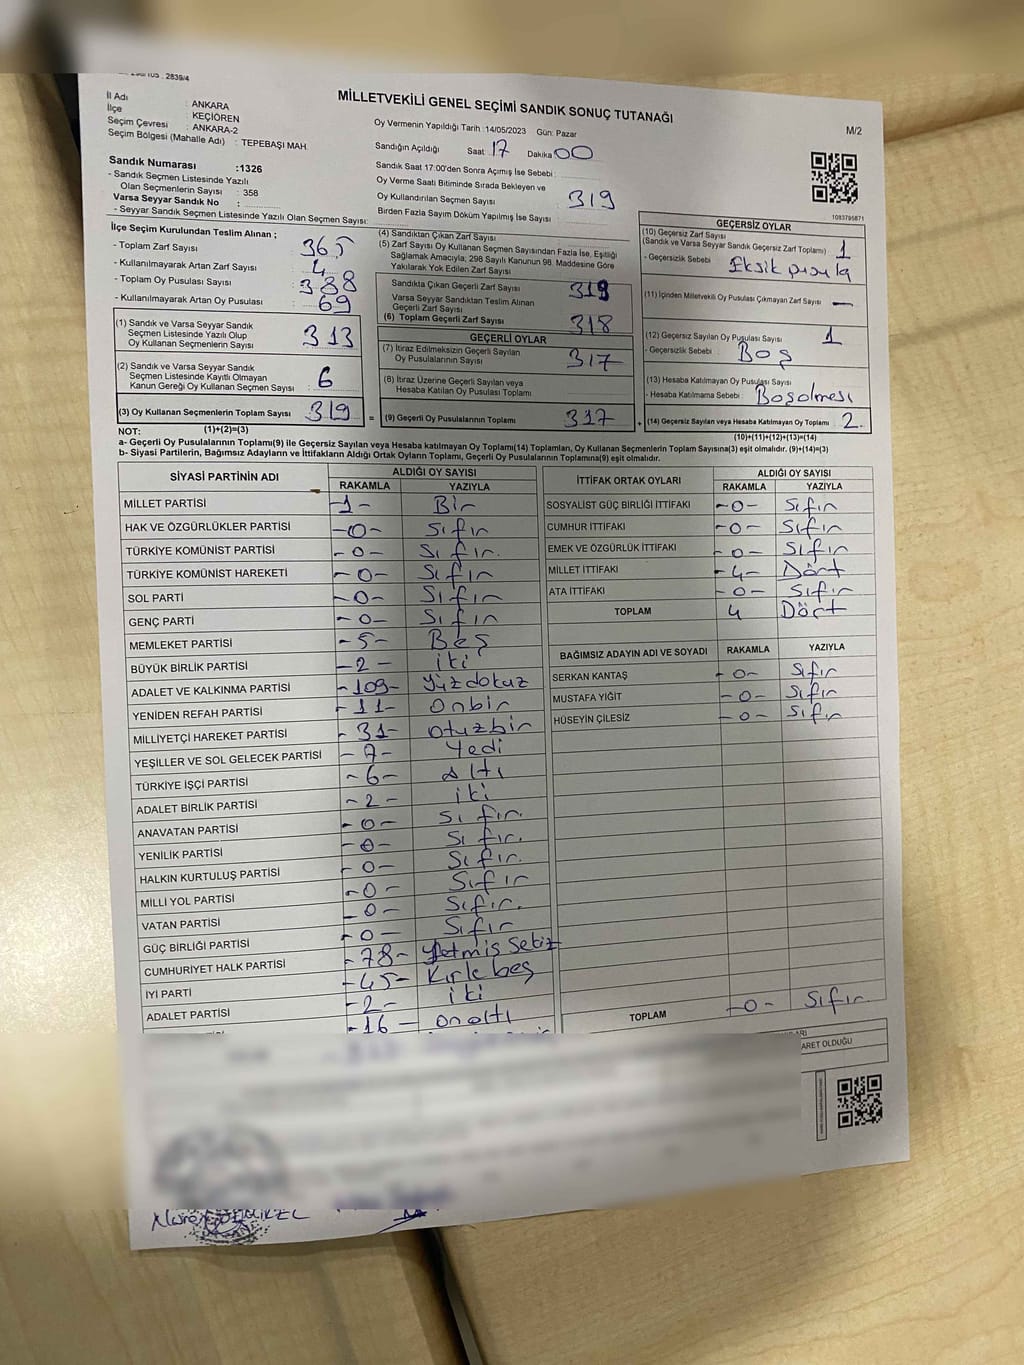 2839/4
MİLLETVEKİLİ GENEL SEÇİMİ SANDIK SONUÇ TUTANAĞI
M/2
İl Adı : ANKARA
İlçe : KEÇİÖREN
Seçim Çevresi : ANKARA-2
Seçim Bölgesi (Mahalle Adı) : TEPEBAŞI MAH.
Oy Vermenin Yapıldığı Tarih :14/05/2023 Gün: Pazar
Sandığın Açıldığı Saat 17 Dakika 00
Sandık Saat 17:00'den Sonra Açımış İse Sebebi :
Oy Verme Saati Bitiminde Sırada Bekleyen ve
Oy Kullandırılan Seçmen Sayısı : 319
Birden Fazla Sayım Döküm Yapılmış İse Sayısı
Sandık Numarası :1326
- Sandık Seçmen Listesinde Yazılı
Olan Seçmenlerin Sayısı : 358
Varsa Seyyar Sandık No :
- Seyyar Sandık Seçmen Listesinde Yazılı Olan Seçmen Sayısı:
1083795871
İlçe Seçim Kurulundan Teslim Alınan ;
- Toplam Zarf Sayısı : 365
- Kullanılmayarak Artan Zarf Sayısı : 4
- Toplam Oy Pusulası Sayısı : 388
- Kullanılmayarak Artan Oy Pusulası : 69
(1) Sandık ve Varsa Seyyar Sandık
Seçmen Listesinde Yazılı Olup
Oy Kullanan Seçmenlerin Sayısı : 313
(2) Sandık ve Varsa Seyyar Sandık
Seçmen Listesinde Kayıtlı Olmayan
Kanun Gereği Oy Kullanan Seçmen Sayısı : 6
(3) Oy Kullanan Seçmenlerin Toplam Sayısı 319
(1)+(2)=(3)
(4) Sandıktan Çıkan Zarf Sayısı
(5) Zarf Sayısı Oy Kullanan Seçmen Sayısından Fazla İse, Eşitliği
Sağlamak Amacıyla; 298 Sayılı Kanunun 98. Maddesine Göre
Yakılarak Yok Edilen Zarf Sayısı
Sandıkta Çıkan Geçerli Zarf Sayısı
Varsa Seyyar Sandıktan Teslim Alınan
Geçerli Zarf Sayısı
(6) Toplam Geçerli Zarf Sayısı 318
GEÇERLİ OYLAR
(7) İtiraz Edilmeksizin Geçerli Sayılan
Oy Pusulalarının Sayısı 317
(8) İtiraz Üzerine Geçerli Sayılan veya
Hesaba Katılan Oy Pusulası Toplamı
= (9) Geçerli Oy Pusulalarının Toplamı 317
GEÇERSİZ OYLAR
(10) Geçersiz Zarf Sayısı
(Sandık ve Varsa Seyyar Sandık Geçersiz Zarf Toplamı) : 1
- Geçersizlik Sebebi : Eksik pusula
(11) İçinden Milletvekili Oy Pusulası Çıkmayan Zarf Sayısı : —
(12) Geçersiz Sayılan Oy Pusulası Sayısı : 1
- Geçersizlik Sebebi : Boş
(13) Hesaba Katılmayan Oy Pusulası Sayısı
- Hesaba Katılmama Sebebi : Boşolması
+ (14) Geçersiz Sayılan veya Hesaba Katılmayan Oy Toplamı 2
(10)+(11)+(12)+(13)=(14)
NOT:
a- Geçerli Oy Pusulalarının Toplamı(9) ile Geçersiz Sayılan veya Hesaba katılmayan Oy Toplamı(14) Toplamları, Oy Kullanan Seçmenlerin Toplam Sayısına(3) eşit olmalıdır. (9)+(14)=(3)
b- Siyasi Partilerin, Bağımsız Adayların ve İttifakların Aldığı Ortak Oyların Toplamı, Geçerli Oy Pusulalarının Toplamına(9) eşit olmalıdır.
SİYASİ PARTİNİN ADI ALDIĞI OY SAYISI
RAKAMLA YAZIYLA
MİLLET PARTİSİ -1- Bir
HAK VE ÖZGÜRLÜKLER PARTİSİ -0- Sıfır
TÜRKİYE KOMÜNİST PARTİSİ -0- Sıfır.
TÜRKİYE KOMÜNİST HAREKETİ -0- Sıfır
SOL PARTİ -0- Sıfır
GENÇ PARTİ -0- Sıfır
MEMLEKET PARTİSİ -5- Beş
BÜYÜK BİRLİK PARTİSİ -2- iki
ADALET VE KALKINMA PARTİSİ -109- Yüzdokuz
YENİDEN REFAH PARTİSİ -11- onbir
MİLLİYETÇİ HAREKET PARTİSİ -31- otuzbir
YEŞİLLER VE SOL GELECEK PARTİSİ -7- Yedi
TÜRKİYE İŞÇİ PARTİSİ -6- Altı
ADALET BİRLİK PARTİSİ -2- iki
ANAVATAN PARTİSİ -0- Sıfır.
YENİLİK PARTİSİ -0- Sıfır.
HALKIN KURTULUŞ PARTİSİ -0- Sıfır.
MİLLİ YOL PARTİSİ -0- Sıfır
VATAN PARTİSİ -0- Sıfır.
GÜÇ BİRLİĞİ PARTİSİ -0- Sıfır
CUMHURİYET HALK PARTİSİ -78- Yetmiş Sekiz
İYİ PARTİ -45- Kırk beş
ADALET PARTİSİ -2- iki
-16- onaltı
İTTİFAK ORTAK OYLARI ALDIĞI OY SAYISI
RAKAMLA YAZIYLA
SOSYALİST GÜÇ BİRLİĞİ İTTİFAKI -0- Sıfır
CUMHUR İTTİFAKI -0- Sıfır
EMEK VE ÖZGÜRLÜK İTTİFAKI -0- Sıfır
MİLLET İTTİFAKI -4- Dört
ATA İTTİFAKI -0- Sıfır
TOPLAM 4 Dört
BAĞIMSIZ ADAYIN ADI VE SOYADI RAKAMLA YAZIYLA
SERKAN KANTAŞ -0- Sıfır
MUSTAFA YİĞİT -0- Sıfır
HÜSEYİN ÇİLESİZ -0- Sıfır
TOPLAM -0- Sıfır.
ARET OLDUĞU